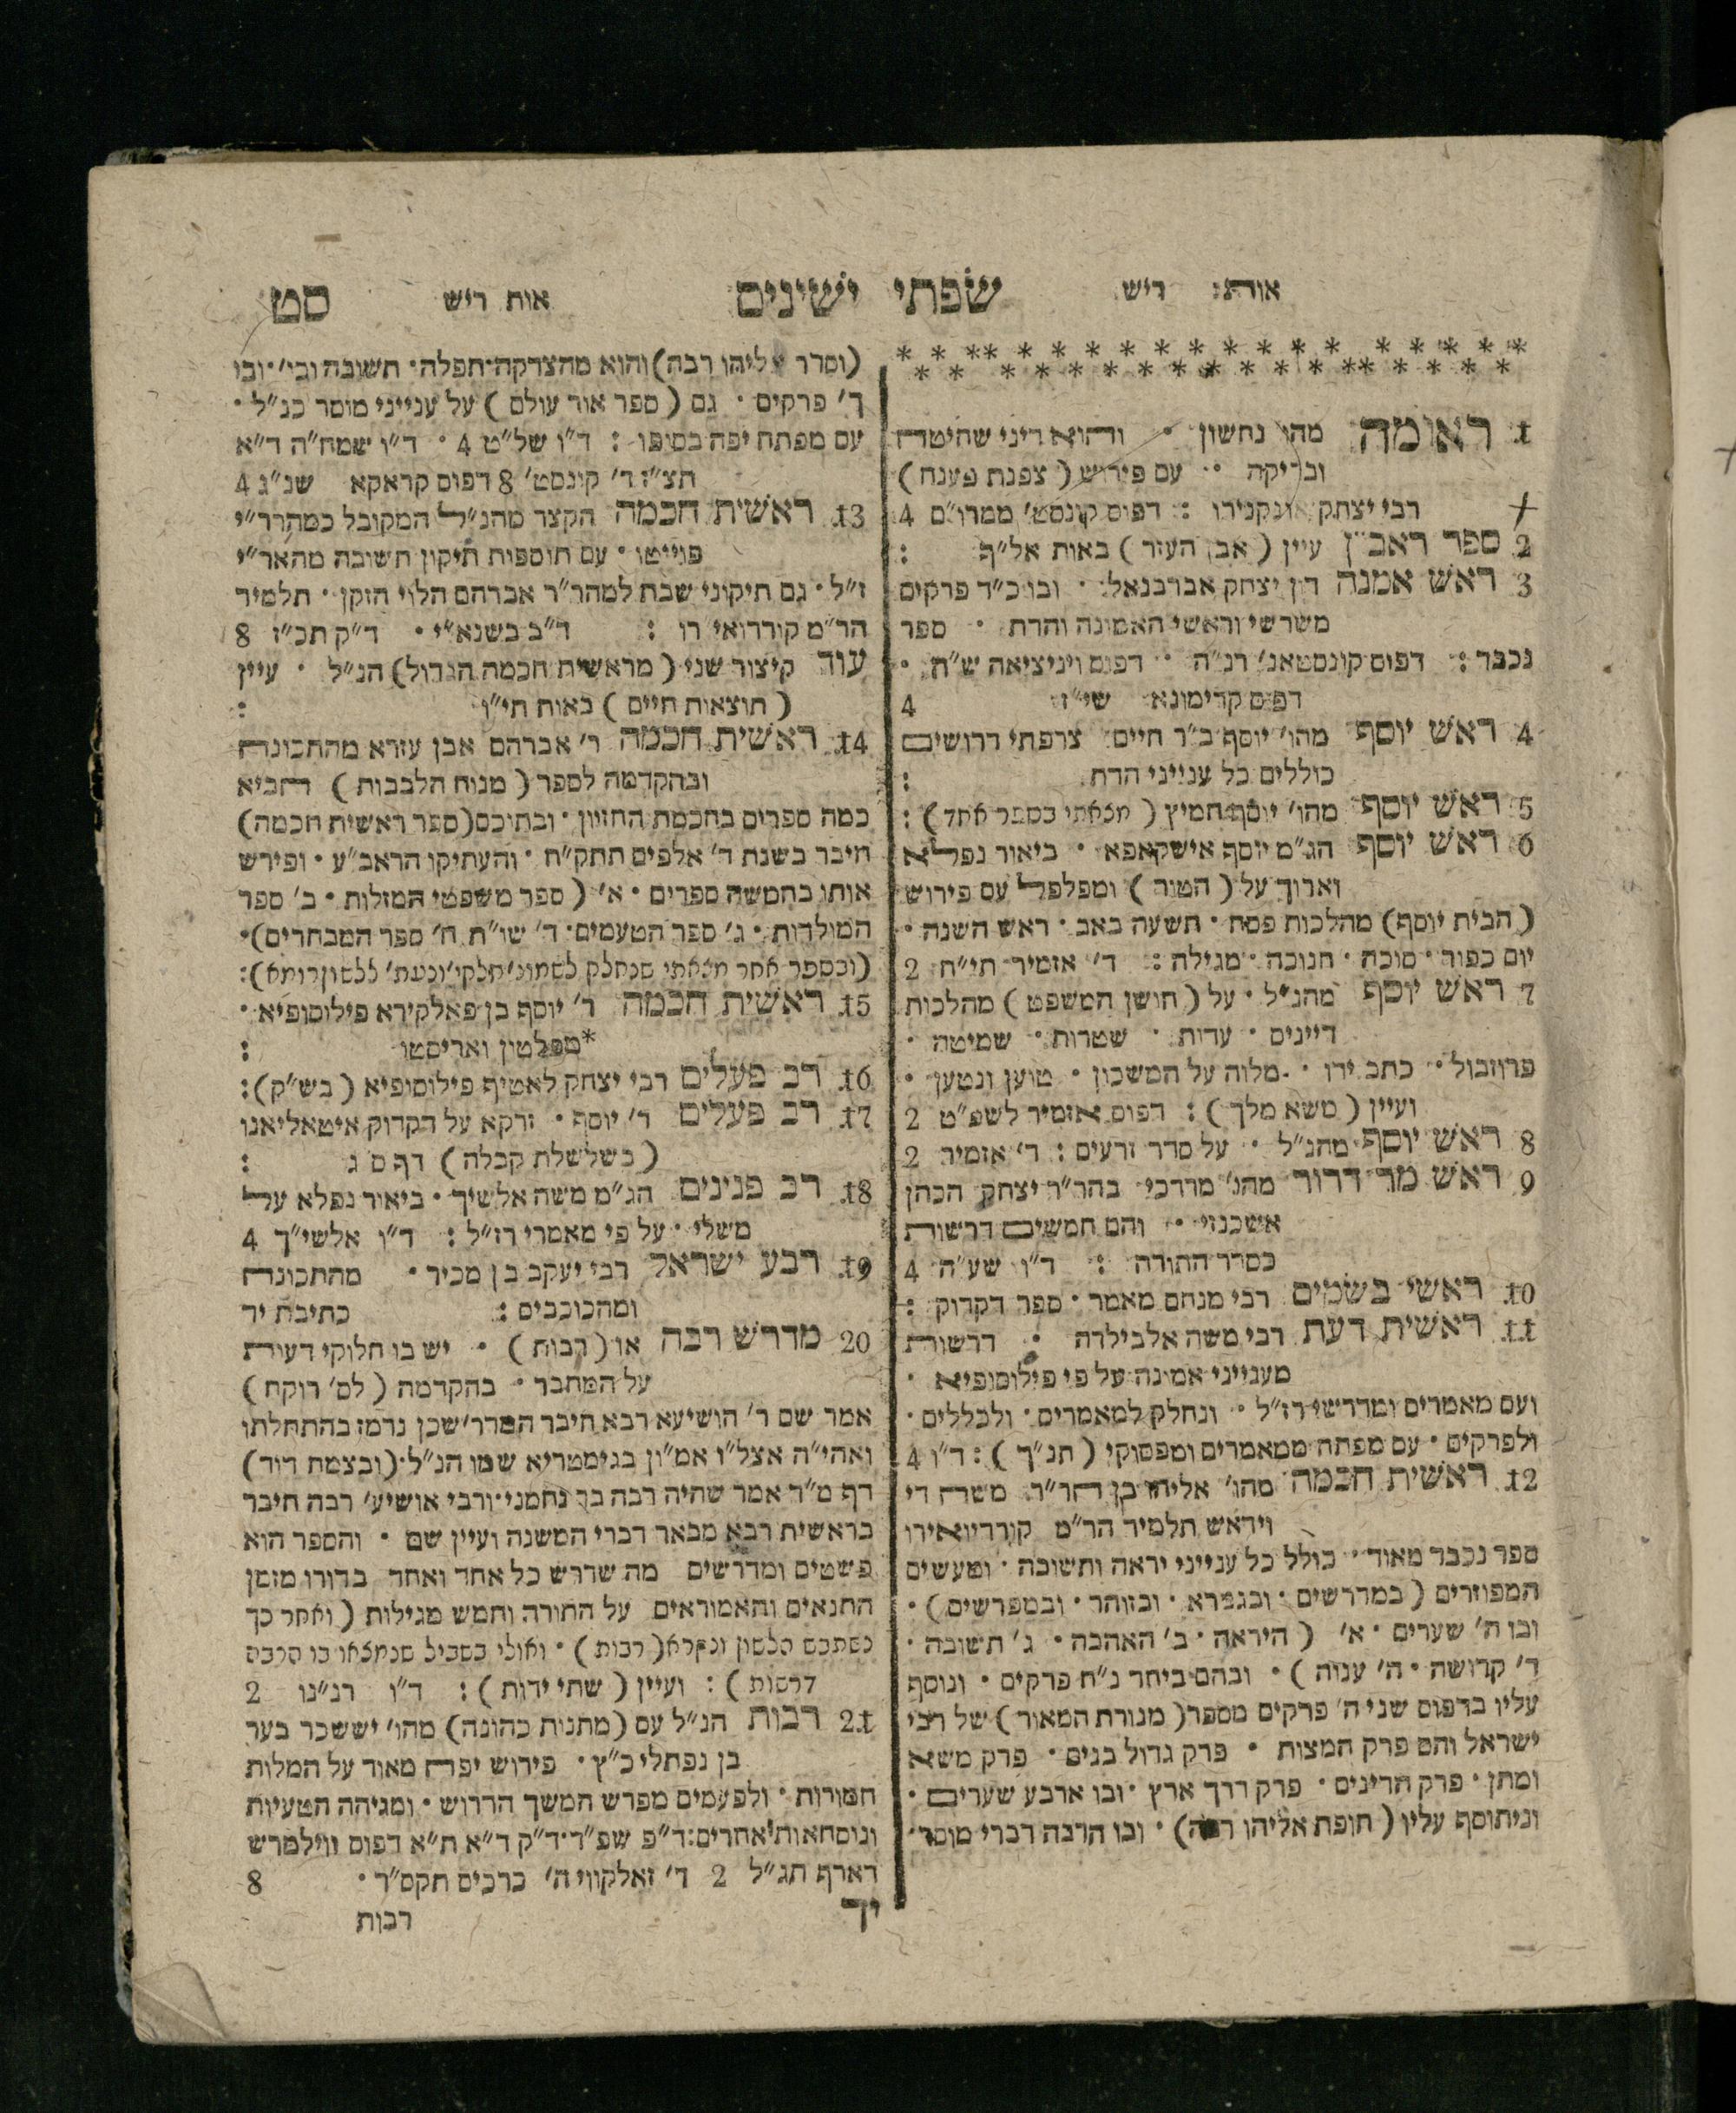 אות: ריש שפתי ישינים אות ריש סט
* * ** * * * * * * * * * * * * * * *
* * * * * * * * * * * * ** * * * *
1 ראומה מהו' נחשון • והוא דיני שחיטה
ובדיקה • עם פירוש (צפנת פענח)
רבי יצחק אונקנירו : דפוס קונסט' ממרו"ם 4
2 ספר ראב"ן עיין (אבן העזר) באות אל"ף :
3 ראש אמנה דון יצחק אברבנאל • ובו כ"ד פרקים
משרשי וראשי האמונה והדת • ספר
נכבד : דפוס קונסטאנ' רנ"ה • דפוס ויניציאה ש"ה •
דפוס קרימונא שי"ז 4
4 ראש יוסף מהו' יוסף ב"ר חיים צרפתי דרושים
כוללים כל ענייני הדת :
5 ראש יוסף מהו' יוסף חמיץ (מצאתי בספר אחד) :
6 ראש יוסף הג"מ יוסף אישקאפא • ביאור נפלא
וארוך על (הטור) ומפלפל עם פירוש
(הבית יוסף) מהלכות פסח • תשעה באב • ראש השנה •
יום כפור • סוכה • חנוכה • מגילה : ד' אזמיר תי"ח 2
7 ראש יוסף מהנ"ל • על (חושן המשפט) מהלכות
דיינים • עדות • שטרות • שמיטה •
פרוזבול • כתב ידו • מלוה על המשכון • טוען ונטען •
ועיין (משא מלך) : דפוס אזמיר לשפ"ט 2
8 ראש יוסף מהנ"ל • על סדר זרעים : ד' אזמיר 2
9 ראש מר דרור מהו' מרדכי בהר"ר יצחק הכהן
אשכנזי • והם חמשים דרשות
כסדר התורה : ד"ו שע"ה 4
10 ראשי בשמים רבי מנחם מאמר • ספר דקדוק :
11 ראשית דעת רבי משה אלבילדה • דרשות
מענייני אמונה על פי פילוסופיא •
ועם מאמרים ומדרשי רז"ל • ונחלק למאמרים • ולכללים •
ולפרקים • עם מפתח ממאמרים ומפסוקי (תנ"ך) : ד"ו 4
12 ראשית חכמה מהו' אליהו בן הר"ר משה די
וידאש תלמיד הר"מ קורדיואירו
ספר נכבד מאוד כולל כל ענייני יראה ותשובה • ומעשים
המפוזרים (במדרשים • ובגמרא • ובזוהר • ובמפרשים) •
ובו ה' שערים • א' (היראה • ב' האהבה • ג' תשובה •
ד' קדושה • ה' ענוה) • ובהם ביחד נ"ח פרקים • ונוסף
עליו בדפוס שני ה' פרקים מספר (מנורת המאור) של רבי
ישראל והם פרק המצות • פרק גדול בנים • פרק משא
ומתן • פרק הדינים • פרק דרך ארץ • ובו ארבע שערים •
וניתוסף עליו (חופת אליהו רבה) • ובו הרבה דברי מוסר •
(וסדר אליהו רבה) והוא מהצדקה • תפלה • תשובה וכו' • ובו
ך' פרקים • גם (ספר אור עולם) על ענייני מוסר כנ"ל •
עם מפתח יפה בסופו : ד"ו של"ט 4 • ד"ו שמח"ה ד"א
תצ"ז ד' קונסט' 8 דפוס קראקא שנ"ג 4
13 ראשית חכמה הקצר מהנ"ל המקובל כמהרר"י
פוייטו • עם תוספות תיקון תשובה מהאר"י
ז"ל • גם תיקוני שבת למהר"ר אברהם הלוי הזקן • תלמיד
הר"מ קורדואי רו : ד"ב בשנא"י • ד"ק תכ"ז 8
עוד קיצור שני (מראשית חכמה הגדול) הנ"ל • עיין
(תוצאות חיים) באות תי"ו :
14 ראשית חכמה ר' אברהם אבן עזרא מהתכונה
ובהקדמה לספר (מנוח הלבבות) הביא
כמה ספרים בחכמת החזיון • ובתוכם (ספר ראשית חכמה)
חיבר בשנת ד' אלפים תתק"ח • והעתיקו הראב"ע • ופירש
אותו בחמשה ספרים • א' (ספר משפטי המזלות • ב' ספר
המולדות • ג' ספר הטעמים • ד' שו"ת ה' ספר המבחרים) •
(ובספר אחר מצאתי שנחלק לשמונ' חלקי' ונעת' ללשון רומא) :
15 ראשית חכמה ר' יוסף בן פאלקירא פילוסופיא •
*מפלטון ואריסטו :
16 רב פעלים רבי יצחק לאטיף פילוסופיא (בש"ק) :
17 רב פעלים ר' יוסף • זרקא על דקדוק איטאליאנו
(בשלשלת קבלה) דף ס ג :
18 רב פנינים הג"מ משה אלשיך • ביאור נפלא על
משלי • על פי מאמרי רז"ל : ד"ו אלשי"ך 4
19 רבע ישראל רבי יעקב בן מכיר • מהתכונה
ומהכוכבים : כתיבת יד
20 מדרש רבה או (רבות) • יש בו חלוקי דעות
על המחבר • בהקדמה (לס' רוקח)
אמר שם ר' הושיעא רבא חיבר המדר' שכן נרמז בהתחלתו
ואהי"ה אצל"ו אמ"ון בגימטריא שמו הנ"ל • (ובצמח דוד)
דף מ"ד אמר שהיה רבה בר נחמני • ורבי אושיע' רבה חיבר
בראשית רבא מבאר דברי המשנה ועיין שם • והספר הוא
פשטים ומדרשים מה שדרש כל אחד ואחד בדורו מזמן
התנאים והאמוראים על התורה וחמש מגילות (ואחר כך
נשתבש הלשון ונקרא (רבות) • ואולי בשביל שנמצאו בו הרבה
דרשות) : ועיין (שתי ידות) : ד"ו רנ"נו 2
21 רבות הנ"ל עם (מתנות כהונה) מהו' יששכר בער
בן נפתלי כ"ץ • פירוש יפה מאוד על המלות
חמורות • ולפעמים מפרש המשך הדרוש • ומגיהה הטעיות
ונוסחאות' אחרים : ד"פ שפ"ד • ד"ק ד"א ת"א דפוס ווילמרש
דארף תג"ל 2 ד' זאלקווי ה' כרכים תקס"ד • 8
יד רבות